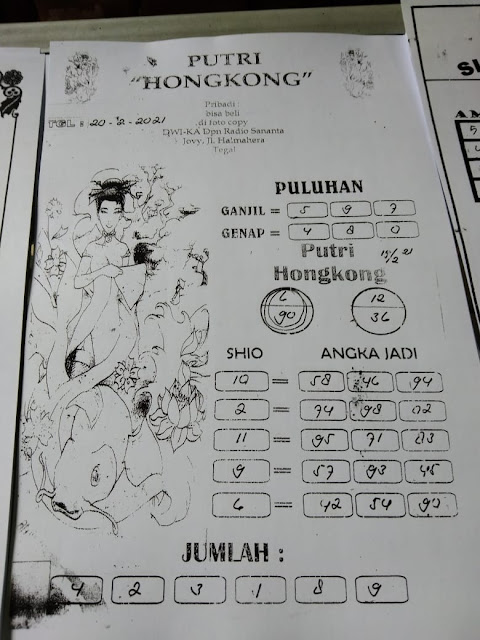 PUTRI
"HONGKONG"
Pribadi :
bisa beli
di foto copy
DWI-KA Dpn Radio Sananta
Jovy. Jl. Halmahera
Tegal
TGL : 20-2-2021
PULUHAN
GANJIL = 5 9 7
GENAP = 4 8 0
Putri
Hongkong
6 12
90 36
SHIO ANGKA JADI
10 = 58 46 94
2 = 74 98 02
11 = 95 71 83
9 = 57 93 45
6 = 42 54
JUMLAH :
4 2 3 1 8 9